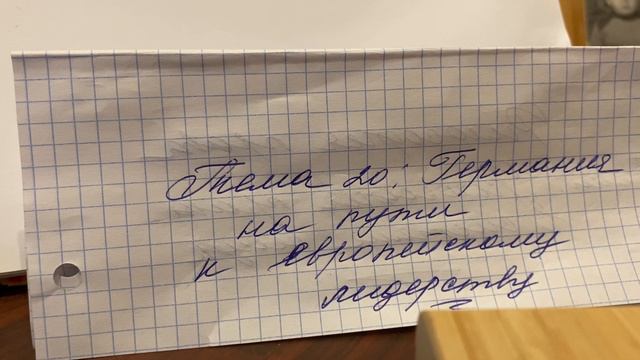 Тема 20: Германия
на пути
к европейскому
лидерству